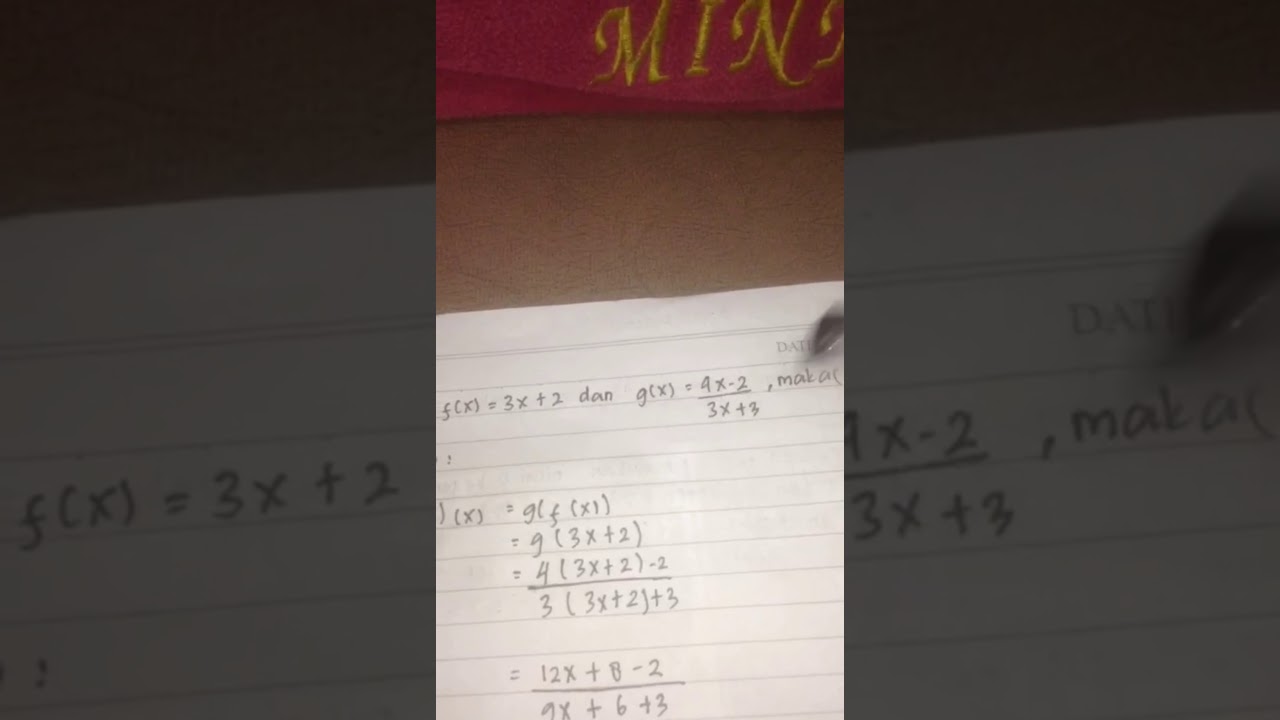 MINI
DATE
f(x) = 3x + 2 dan g(x) = 4x-2 / 3x+3 , maka(
:
)(x) = g(f(x))
= g(3x+2)
= 4(3x+2)-2
3(3x+2)+3
= 12x + 8 - 2
9x + 6 + 3